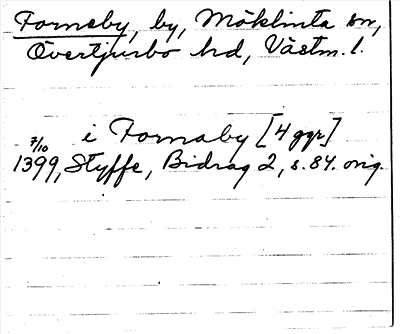 Fornsby, by, Möklinta sn,
Övertjurbo hd, Västm. l.
i Fornaby [4 ggr]
7/10
1399, Styffe, Bidrag 2, s. 84. orig.